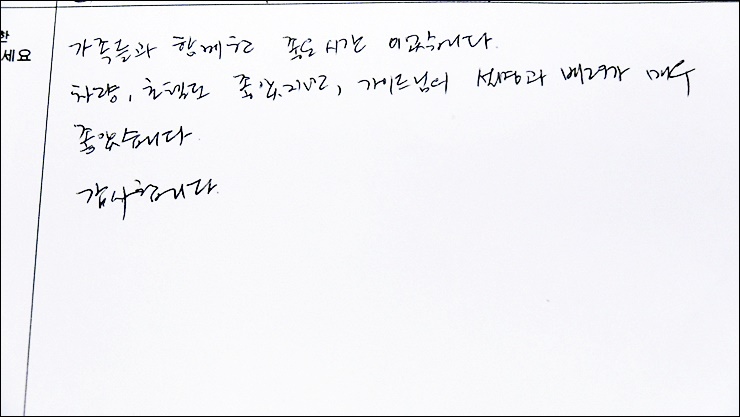 한
세요
가족들과 함께한 좋은 시간 이었습니다.
차량, 호텔도 좋았지만, 가이드님의 설명과 배려가 매우
좋았습니다
감사합니다.